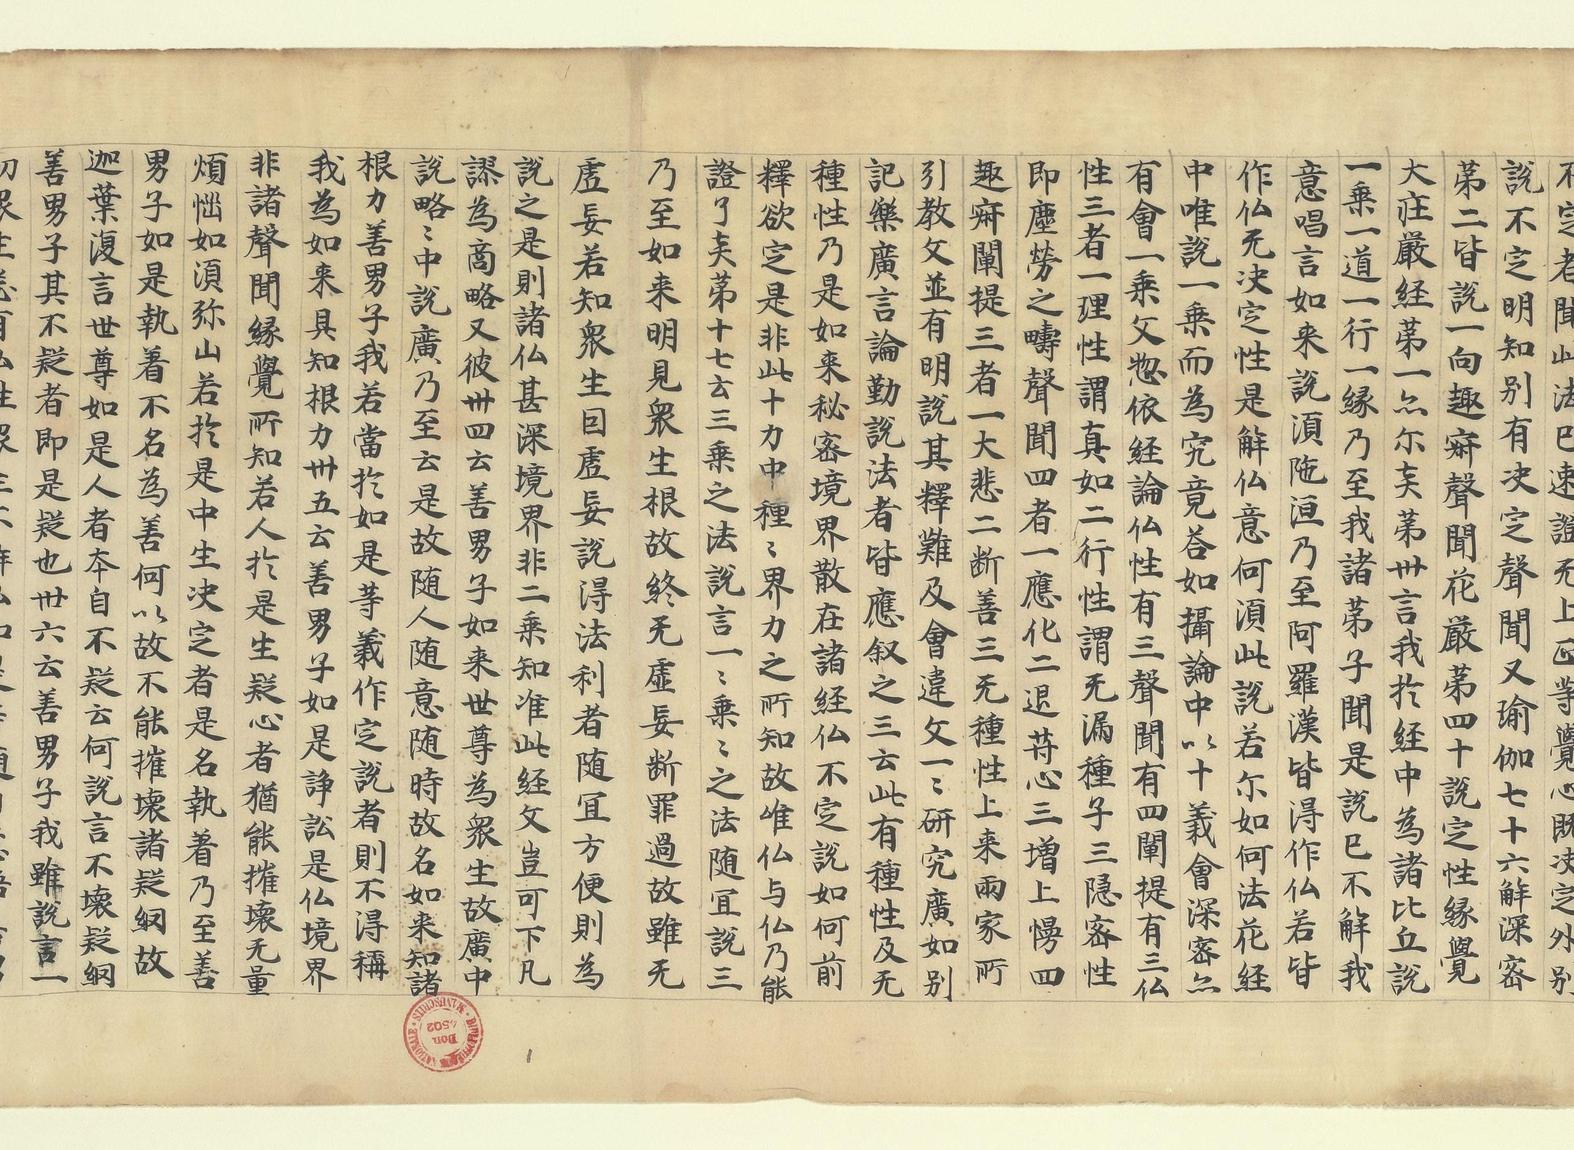 不定者聞此法已速證无上正等覺心既决定外別
說不定明知別有决定聲聞又瑜伽七十六解深密
苐二皆說一向趣寂聲聞花嚴苐四十說定性緣覺
大庄嚴経苐一亦尔矣苐卅言我扵経中為諸比丘說
一乗一道一行一緣乃至我諸苐子聞是說已不解我
意唱言如来說湏陁洹乃至阿羅漢皆得作仏若皆
作仏无决定性是解仏意何湏此說若尔如何法花経
中唯說一乗而為究竟荅如攝論中以十義會深密亦
有會一乗文惣依経論仏性有三聲聞有四闡提有三仏
性三者一理性謂真如二行性謂无漏種子三隠密性
即塵勞之疇聲聞四者一應化二退菩心三增上慢四
趣寂闡提三者一大悲二断善三无種性上来兩家所
引教文並有明說其釋難及會違文一〻研究廣如別
記樂廣言論勤說法者皆應叙之三云此有種性及无
種性乃是如来秘密境界散在諸経仏不定說如何前
釋欲定是非此十力中種〻界力之所知故唯仏与仏乃能
證了矣苐十七云三乗之法說言一〻乗〻之法随冝說三
乃至如来明見衆生根故終无虛妄断罪過故雖无
虛妄若知衆生因虛妄說得法利者随冝方便則為
說之是則諸仏甚深境界非二乗知准此経文豈可下凡
謬為商略又彼卌四云善男子如来世尊為衆生故廣中
說略〻中說廣乃至云是故随人随意随時故名如来知諸
根力善男子我若當扵如是等義作定說者則不得稱
我為如来具知根力卅五云善男子如是諍訟是仏境界
非諸聲聞緣覺所知若人扵是生疑心者猶能摧壞无量
煩惱如湏弥山若扵是中生决定者是名執着乃至善
男子如是執着不名為善何以故不能摧壞諸疑網故
迦葉復言世尊如是人者夲自不疑云何說言不壞疑網
善男子其不疑者即是疑也卅六云善男子我雖說言一
BIBLIOTHÈQUE NATIONALE MANUSCRITS
Don 4502